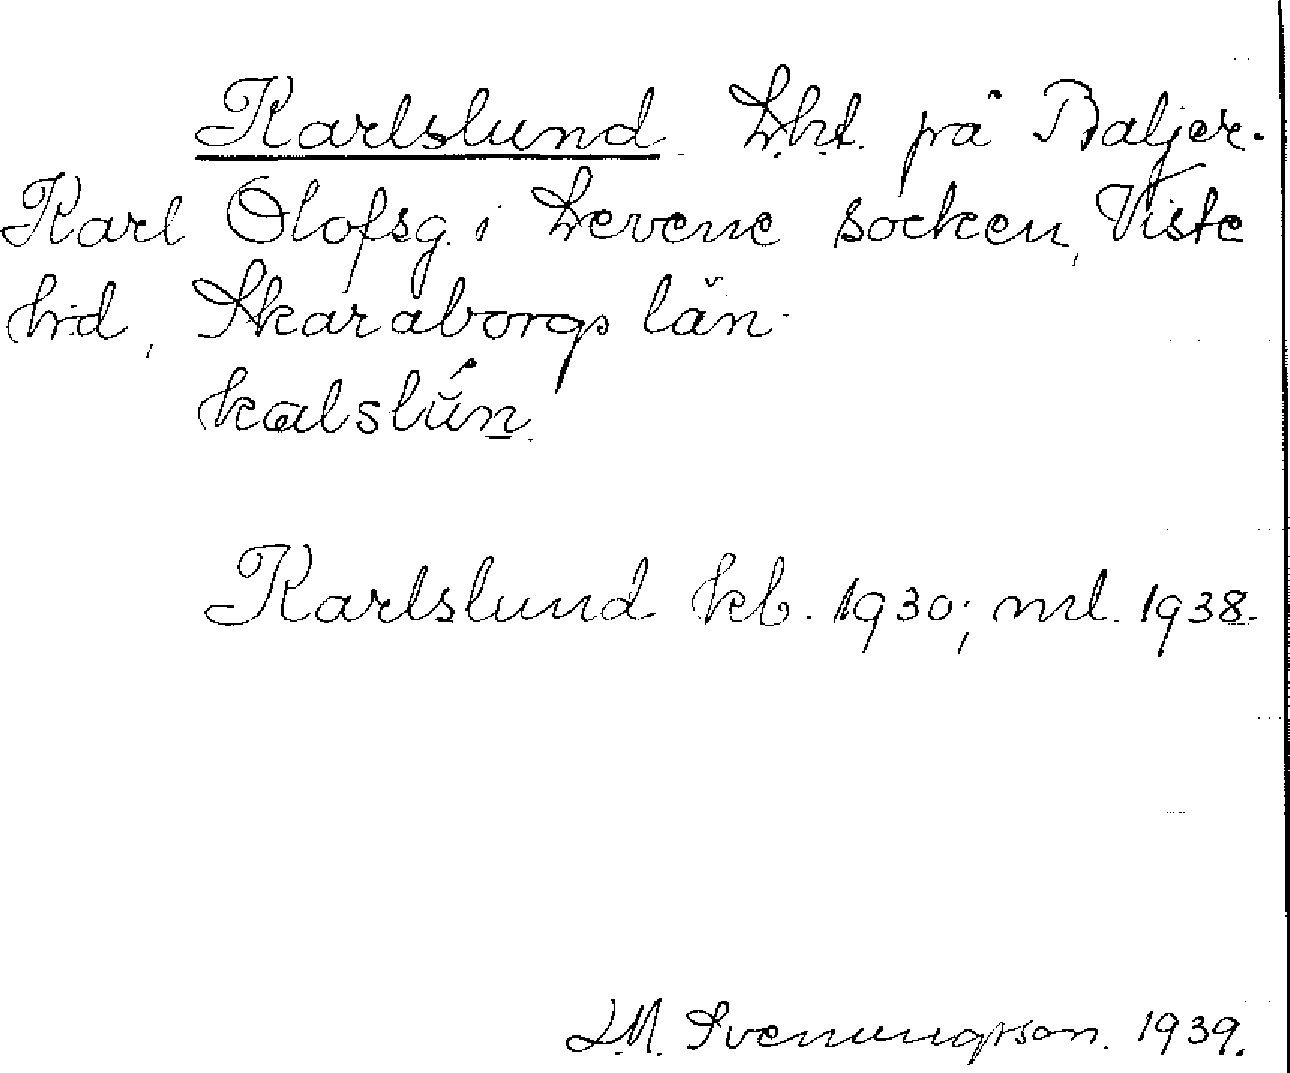 Karlslund. Lht. på Baljer-
Karl Olofsg. i Levene socken, Viste
hd, Skaraborgs län.
kalslún.
Karlslund kb. 1930; ml. 1938.
L.M. Svenungsson. 1939.